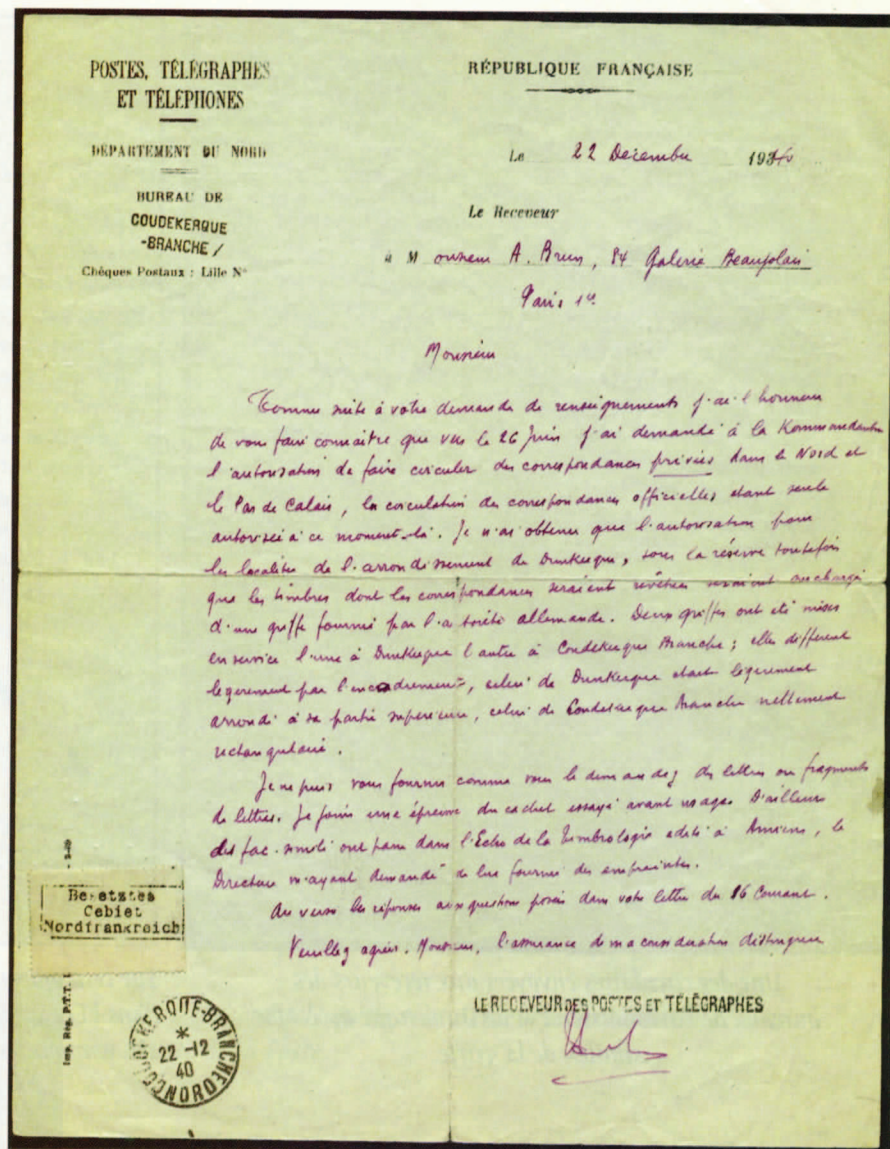 POSTES, TÉLÉGRAPHES
ET TÉLÉPHONES
DÉPARTEMENT DU NORD
BUREAU DE
COUDEKERQUE
-BRANCHE /
Chèques Postaux : Lille N°
RÉPUBLIQUE FRANÇAISE
Le 22 Décembre 1940
Le Receveur
à Monsieur A. Brun, 84 Galerie Beaujolais
Paris 1er
Monsieur
Comme suite à votre demande de renseignements j'ai l'honneur
de vous faire connaître que vers le 26 juin j'ai demandé à la Kommandantur
l'autorisation de faire circuler des correspondances privées dans le Nord et
le Pas de Calais, la circulation des correspondances officielles étant seule
autorisée à ce moment-là. Je n'ai obtenu que l'autorisation pour
les localités de l'arrondissement de Dunkerque, sous la réserve toutefois
que les timbres dont les correspondances seraient revêtues seraient surchargés
d'une griffe fournie par l'autorité allemande. Deux griffes ont été mises
en service l'une à Dunkerque l'autre à Coudekerque Branche ; elles diffèrent
légèrement par l'encadrement, celui de Dunkerque étant légèrement
arrondi à sa partie supérieure, celui de Coudekerque Branche nettement
rectangulaire.
Je ne puis vous fournir comme vous le demandez des lettres ou fragments
de lettres. Je joins une épreuve du cachet essayé avant usage. D'ailleurs
des fac-similé ont paru dans l'Echo de la Timbrologie édité à Amiens, le
Directeur m'ayant demandé de lui fournir des empreintes.
Au verso les réponses aux questions posées dans votre lettre du 16 courant.
Veuillez agréer, Monsieur, l'assurance de ma considération distinguée
LE RECEVEUR DES POSTES ET TÉLÉGRAPHES
Besetztes
Gebiet
Nordfrankreich
Imp. Rég. P.T.T.
COUDEKERQUE-BRANCHE
*
22-12
40
NORD